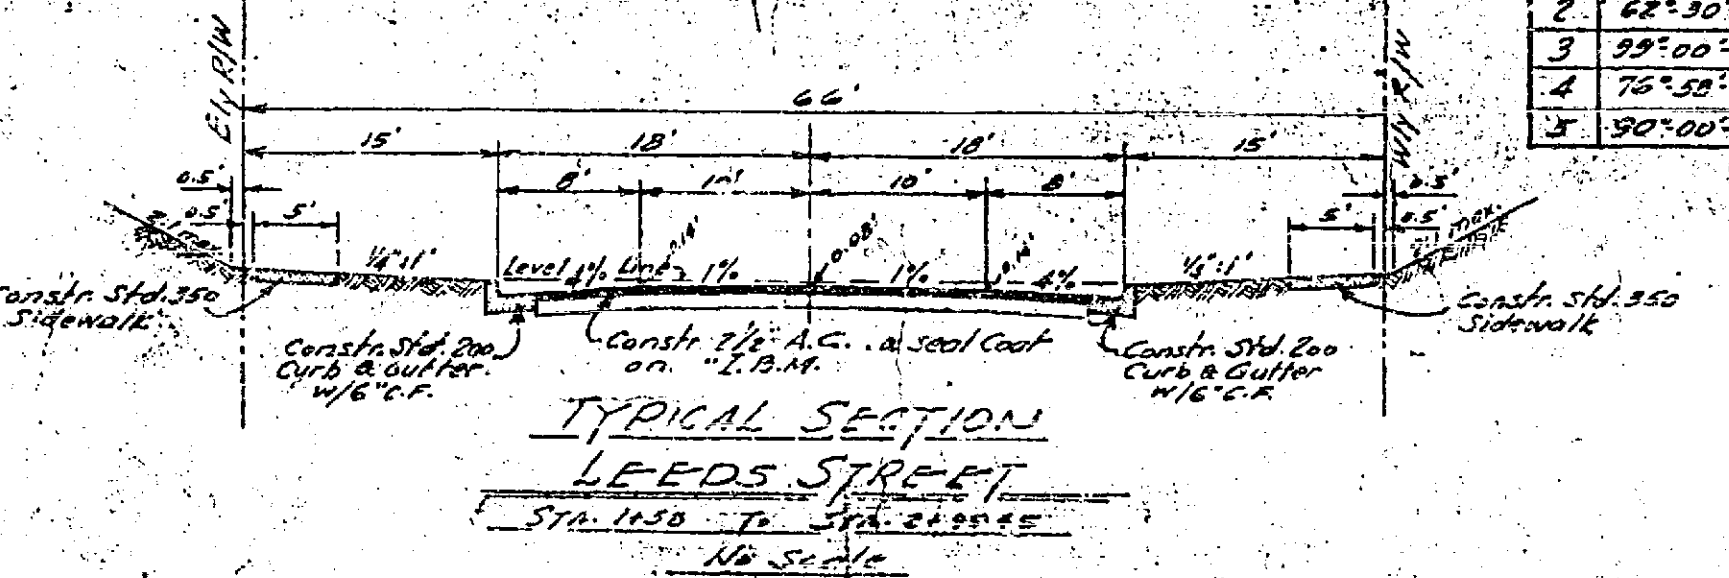 2 62°-30'
3 99°-00'-
4 76°-58'-
5 90°-00'-
E/y R/W
W/y R/W
66'
15' 18' 18' 15'
8' 10' 10' 8'
0.5' 0.5' 5'
5' 0.5' 0.5'
max.
max.
1/4":1'
Level Line
4% 1% 0.14' 0.08' 1% 0.14' 4%
Constr. Std. 350
Sidewalk
Constr. Std. 200
Curb & Gutter
W/6" C.F.
Constr. 2 1/2" A.C. & Seal Coat
on "I.B.M.
Constr. Std. 200
Curb & Gutter
W/6" C.F.
Constr. Std. 350
Sidewalk
TYPICAL SECTION
LEEDS STREET
STA. 1+50 To STA.
No Scale